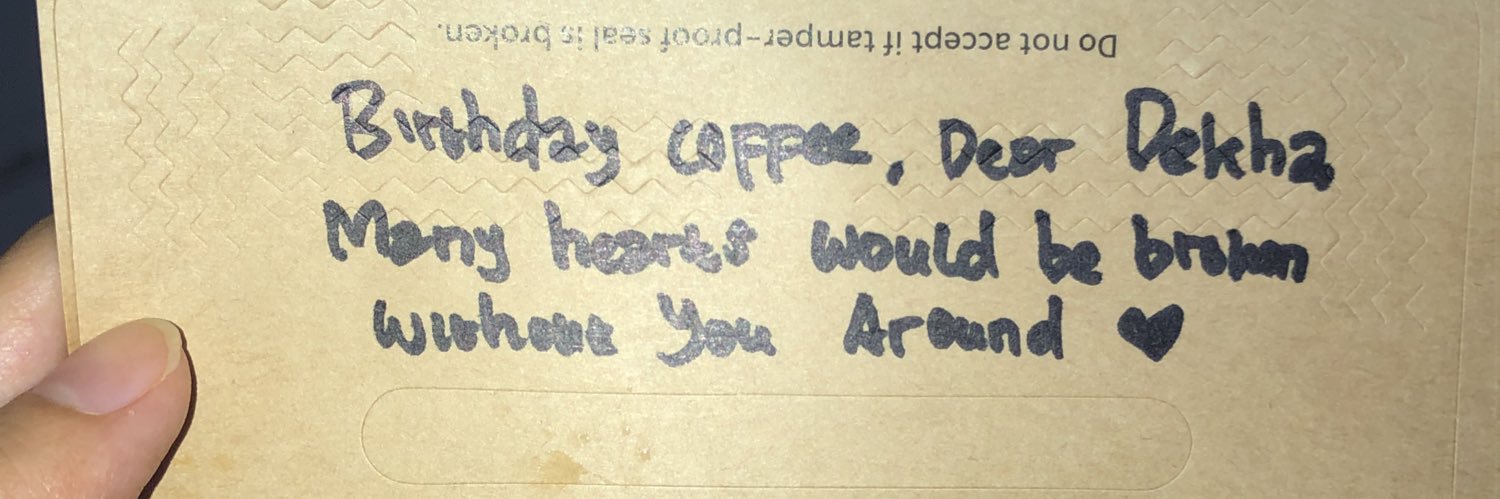 Do not accept if tamper-proof seal is broken.
Birthday coffee, Dear Dekha
Many hearts would be broken
without You Around ♥